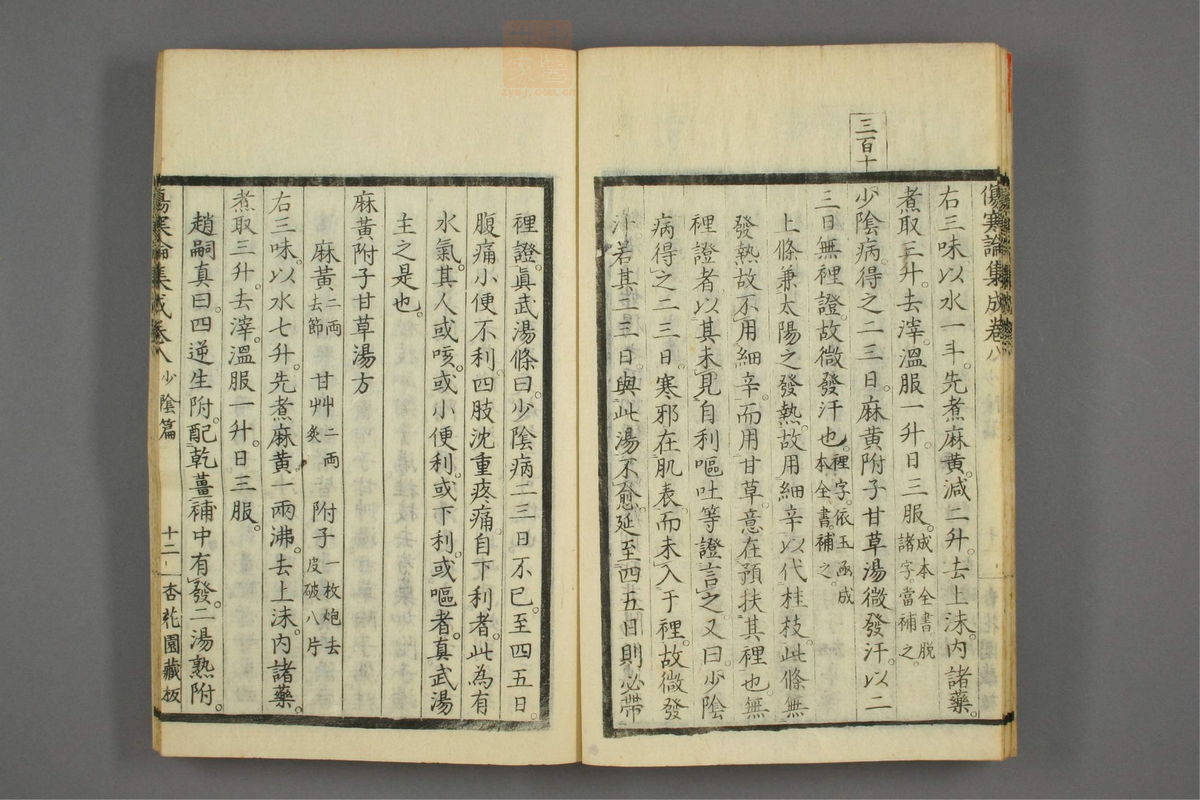 三百十
傷寒論集成卷八
右三味。以水一斗。先煮麻黃。減二升。去上沫。內諸藥。
煮取三升。去滓。溫服一升。日三服。成本全書脫諸字。當補之。
少陰病。得之二三日。麻黃附子甘草湯微發汗。以二
三日無裡證。故微發汗也。裡字。依玉函成本全書。補之。
上條兼太陽之發熱。故用細辛以代桂枝。此條無
發熱。故不用細辛。而用甘草。意在預扶其裡也。無
裡證者。以其未見自利嘔吐等證言之。又曰。少陰
病得之二三日。寒邪在肌表。而未入于裡。故微發
汗。若其二三日。與此湯不愈。延至四五日。則必帶
裡證。眞武湯條曰。少陰病二三日不已。至四五日。
腹痛小便不利。四肢沈重疼痛。自下利者。此為有
水氣。其人或咳。或小便利。或下利。或嘔者。真武湯
主之是也。
麻黃附子甘草湯方
麻黃二兩去節 甘艸二兩炙 附子一枚炮去皮破八片
右三味。以水七升。先煮麻黃一兩沸。去上沫。內諸藥。
煮取三升。去滓。溫服一升。日三服。
趙嗣真曰。四逆生附。配乾薑補中有發。二湯熟附。
傷寒論集成卷八 少陰篇 十二 杏花園藏板